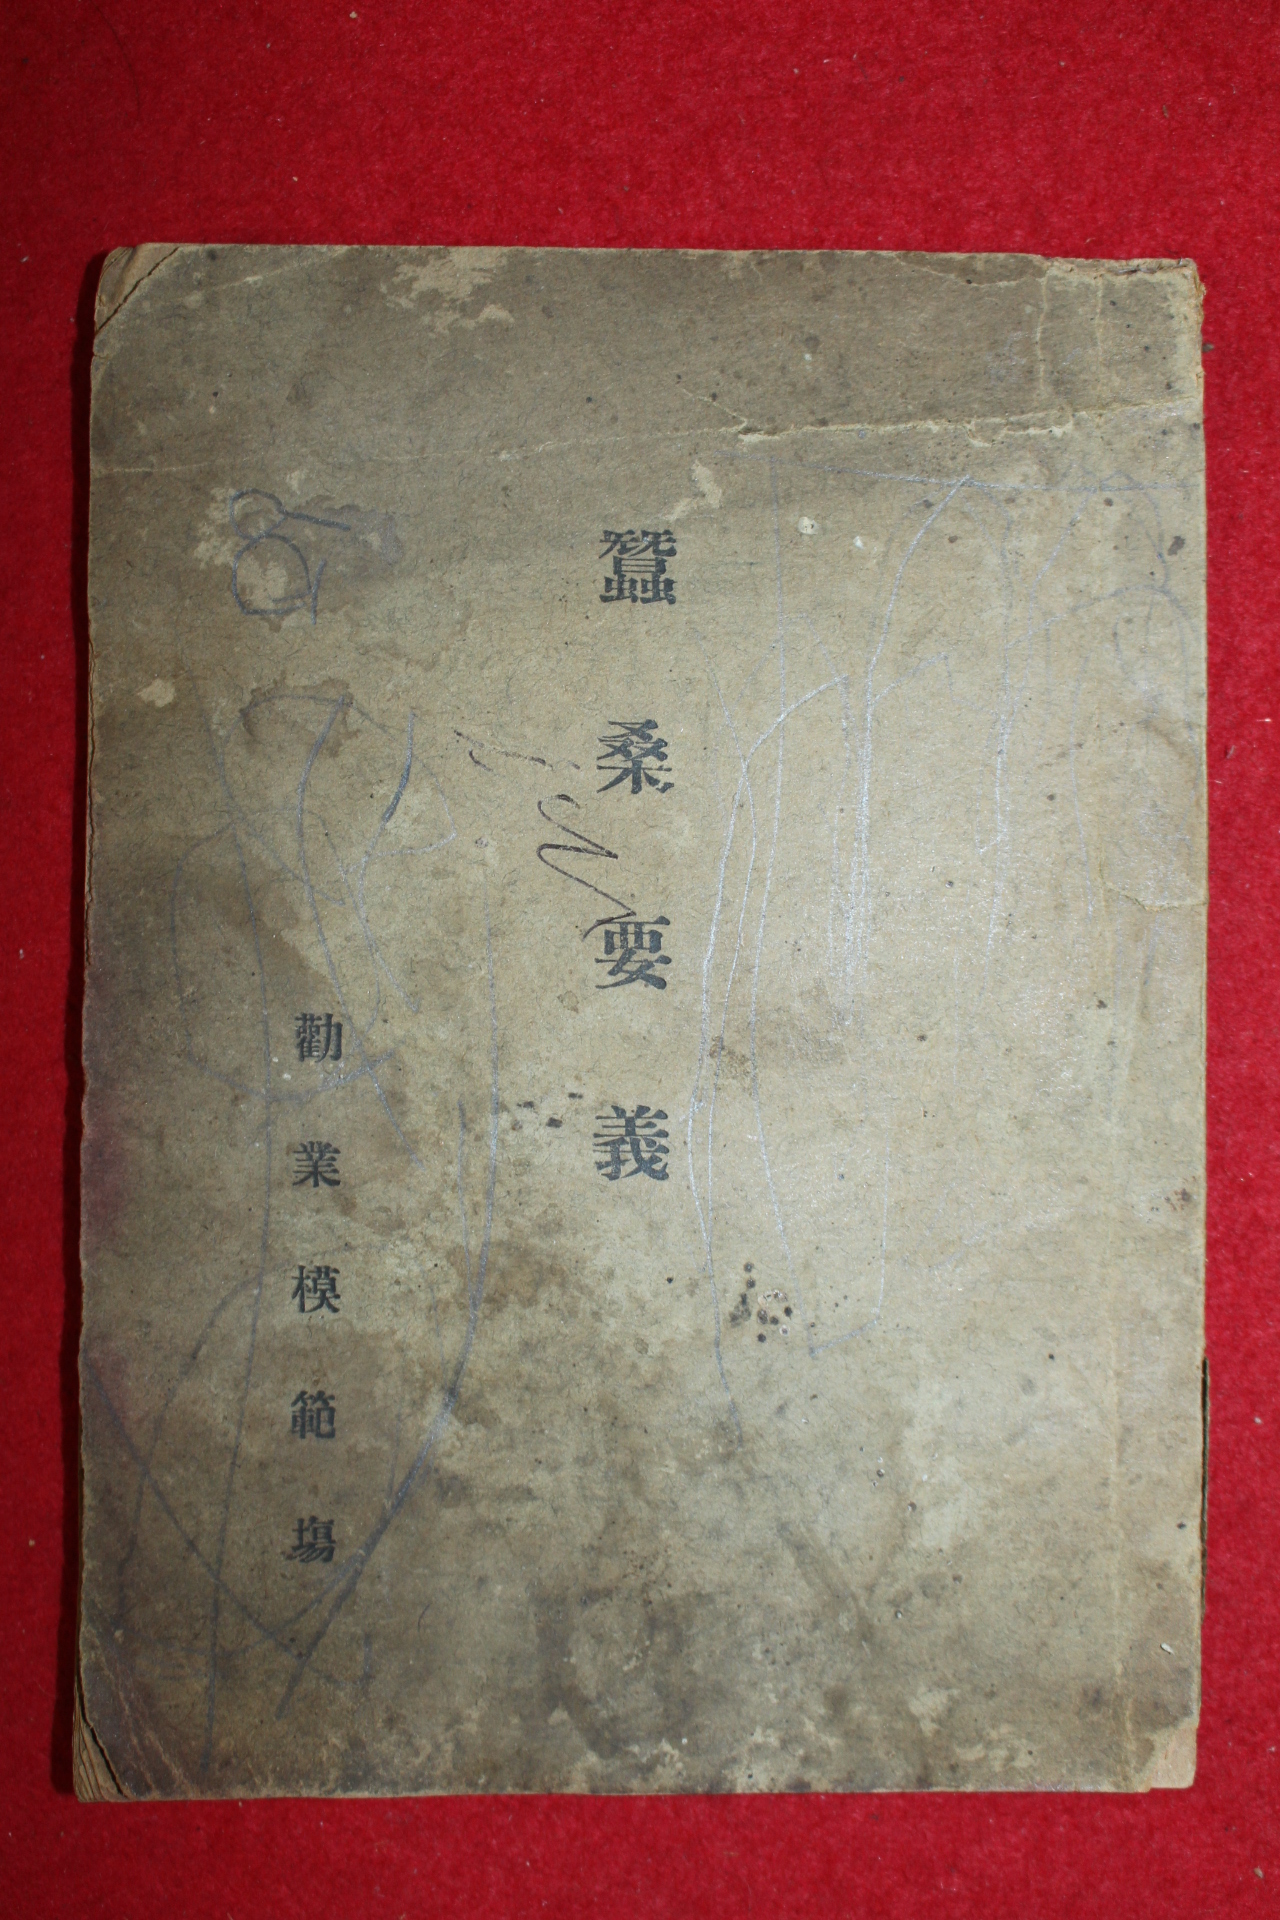 蠶桑要義
勸業模範塲